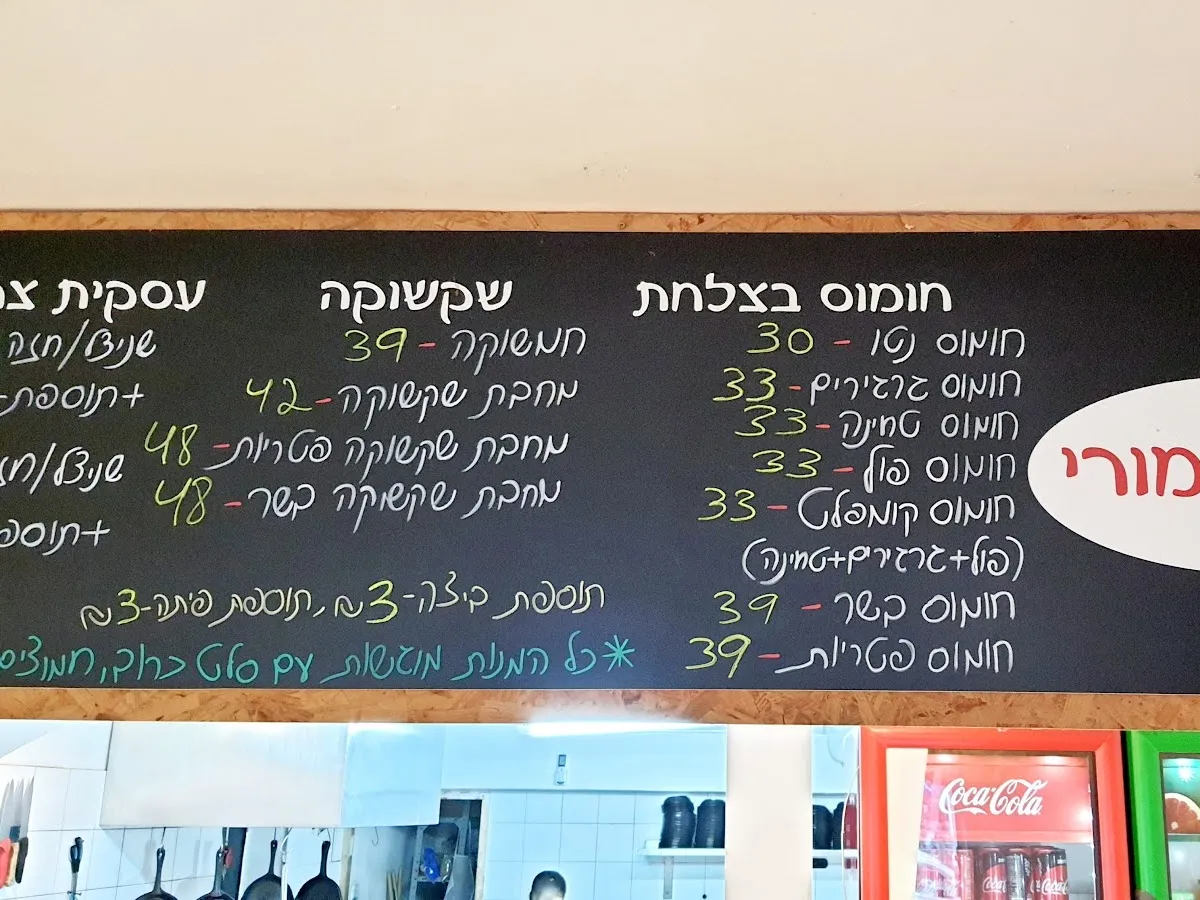 מורי
חומוס בצלחת
חומוס נטו - 30
חומוס גרגירים - 33
חומוס טחינה - 33
חומוס פול - 33
חומוס קומפלט - 33
(פול+גרגירים+טחינה)
חומוס בשר - 39
חומוס פטריות - 39
שקשוקה
חמשוקה - 39
מחבת שקשוקה - 42
מחבת שקשוקה פטריות - 48
מחבת שקשוקה בשר - 48
תוספת ביצה-3₪, תוספת פיתה-3₪
*כל המנות מוגשות עם סלט כרוב, חמוצים
עסקית
שניצל/חזה
+תוספת
שניצל/
+תוספ
Coca-Cola
Coca
Coca-Cola